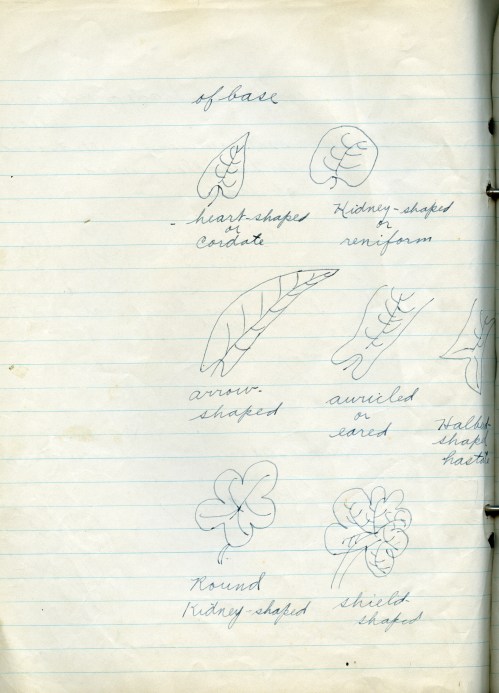 of base
heart-shaped
or
cordate
Kidney-shaped
or
reniform
arrow-
shaped
auricled
or
eared
Halbe
shape
hasta
Round
Kidney-shaped
shield-
shaped